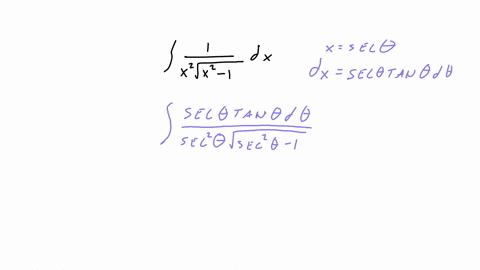 ∫ 1 / (x²√(x²-1)) dx
x = SEC θ
dx = SEC θ TAN θ dθ
∫ SEC θ TAN θ dθ / (SEC²θ √(SEC²θ - 1))